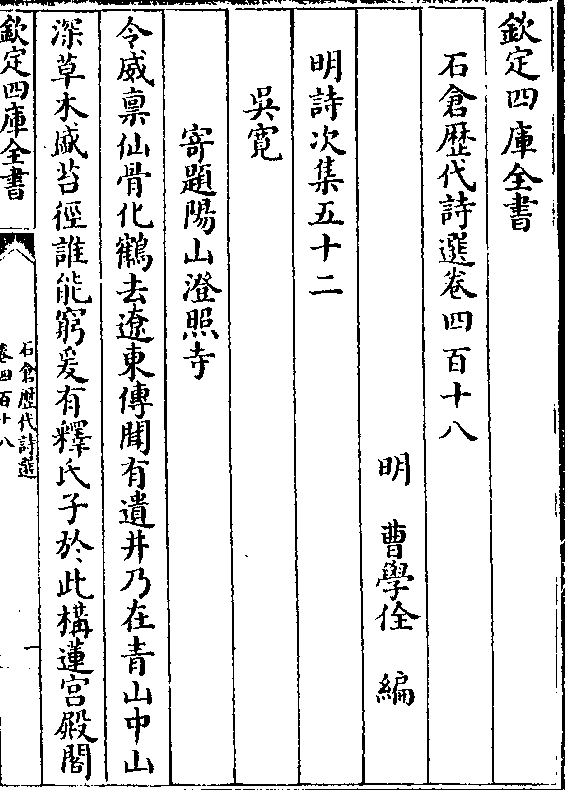 欽定四庫全書
石倉歴代詩選卷四百十八
明　曹學佺　編
明詩次集五十二
吳寛
寄題陽山澄照寺
令威禀仙骨化鶴去遼東傳聞有遺井乃在青山中山
深草木盛苔徑誰能窮爰有釋氏子於此構蓮宫殿閣
欽定四庫全書
石倉歴代詩選
卷四百十八
一